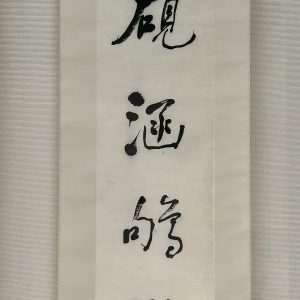 硯涵鴝